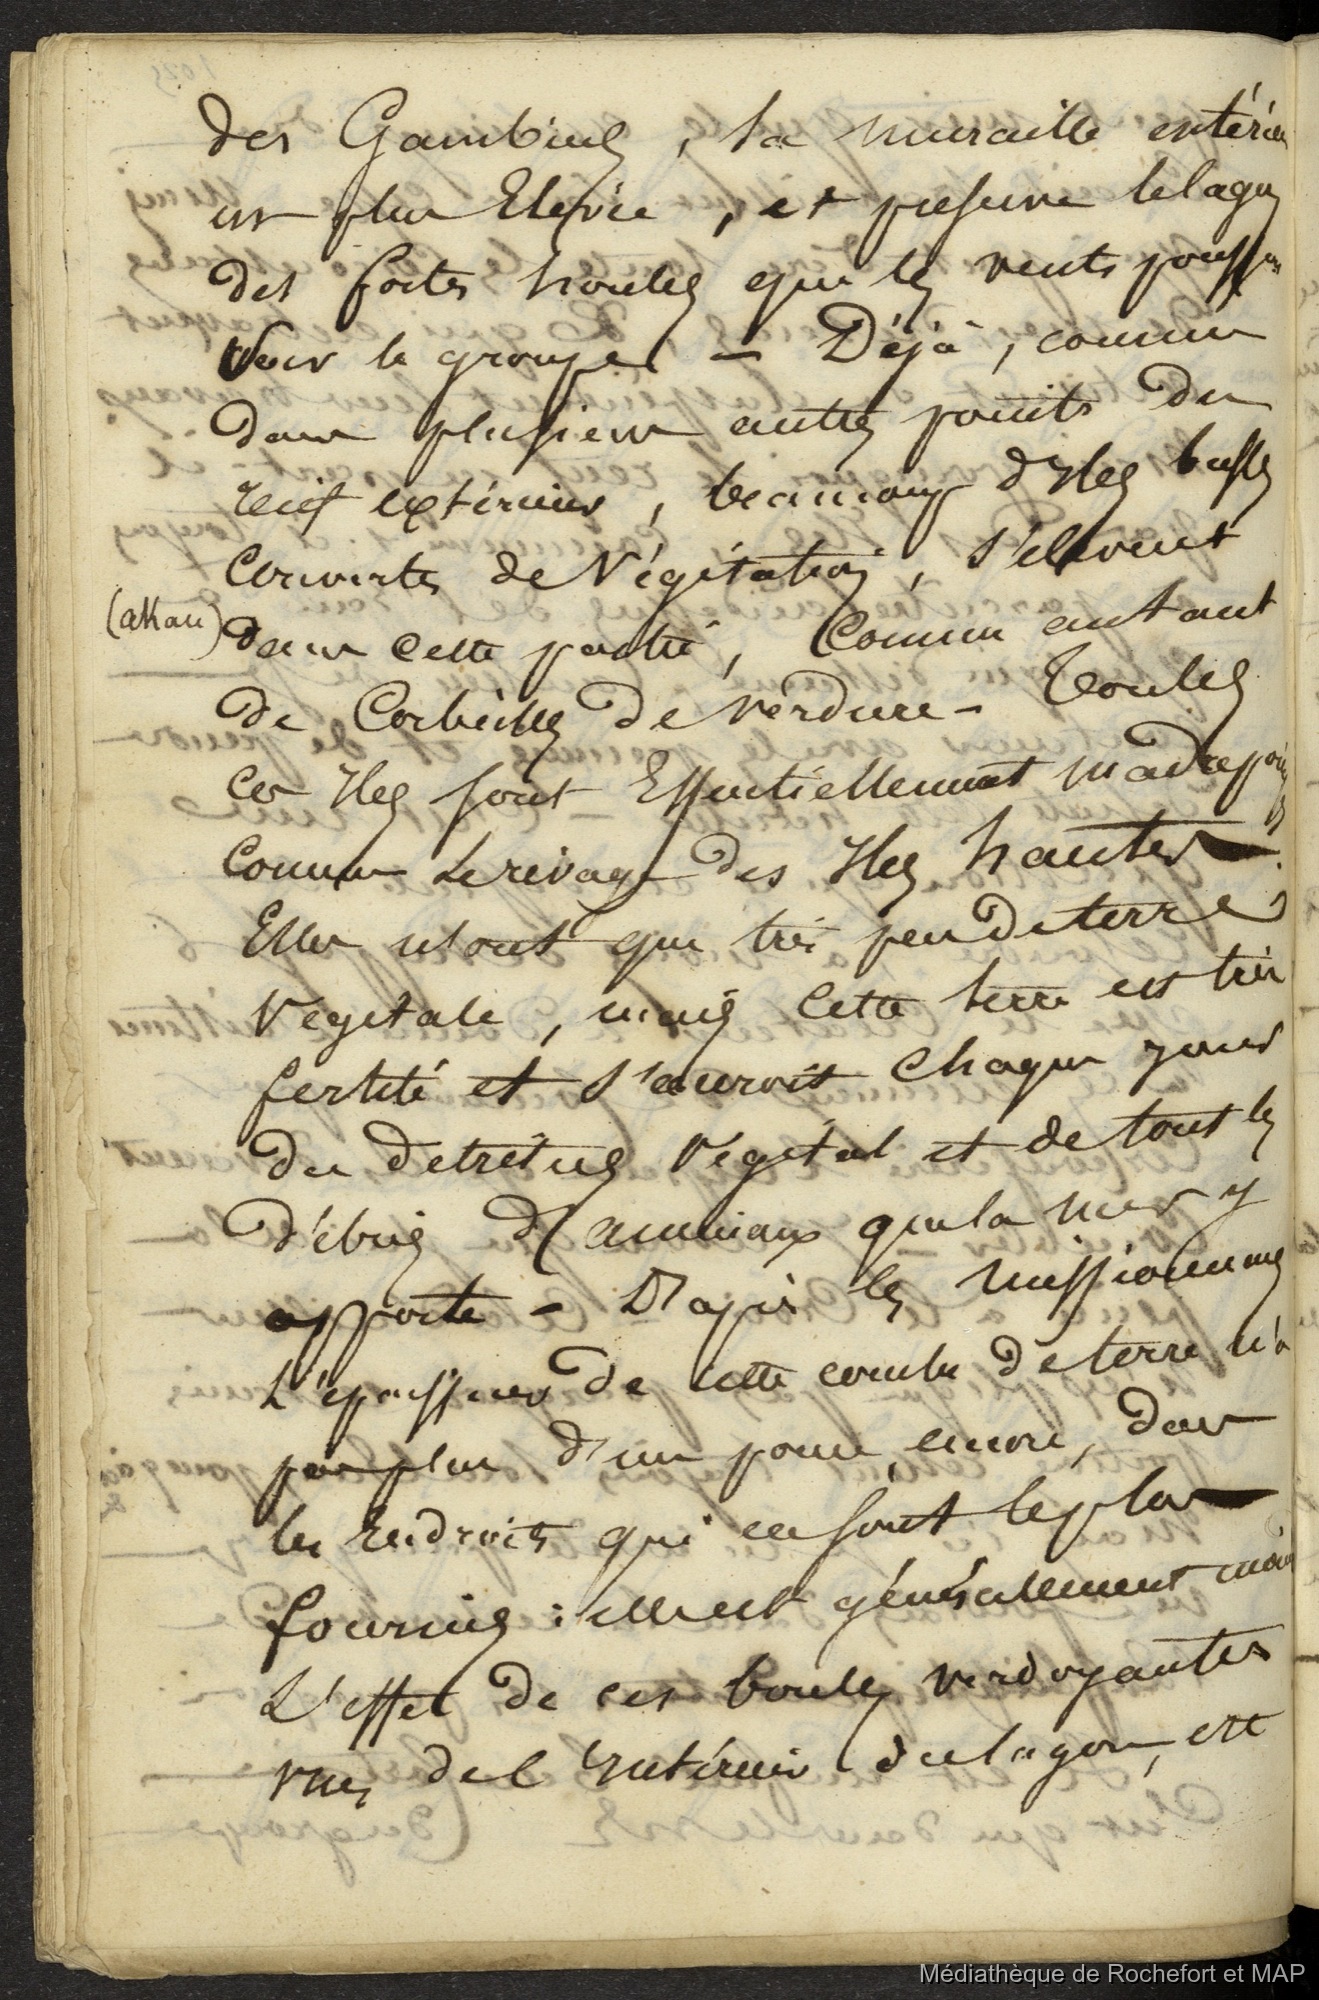 des Gambiers, la muraille extérieure
est plus Elevée, et preserve le lagon
des fortes houles que les vents poussent
vers le groupe - Déjà, comme
dans plusieurs autres points du
recif extérieur, beaucoup d'Iles basses
Couvertes de Végétation, s'elevent
(akau)
dans cette partie, Comme autant
de Corbeilles de verdure - Toutes
ces Iles sont Essentiellement madreporiques
Comme le rivage des Iles hautes
Elles n'ont que très peu de terre
végetale, mais Cette terre est très
fertile et s'accroit Chaque jour
du detritus végétal et de tout les
débris d'animaux que la mer y
apporte - D'après les missionnaires
L'épaisseur de cette couche de terre n'a
pas plus d'un pouce encore, dans
les Endroits qui en sont le plus
fournis : elle est généralement moins
L'effet de ces boules verdoyantes
vues de l'Intérieur du lagon, est
Médiathèque de Rochefort et MAP